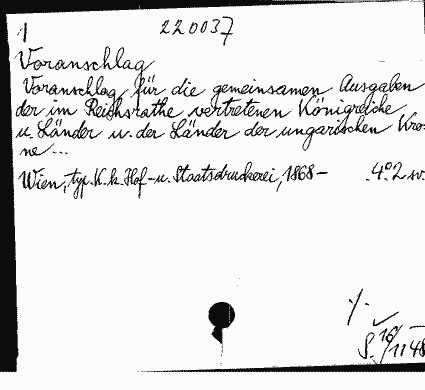 1 220037
Voranschlag
Voranschlag für die gemeinsamen Ausgaben
der im Reichsrathe vertretenen Königreiche
u. Länder u. der Länder der ungarischen Kro-
ne...
Wien, typ. K. k. Hof- u. Staatsdruckerei, 1868– 4° 2 sv.
·/·
S. 16/1148